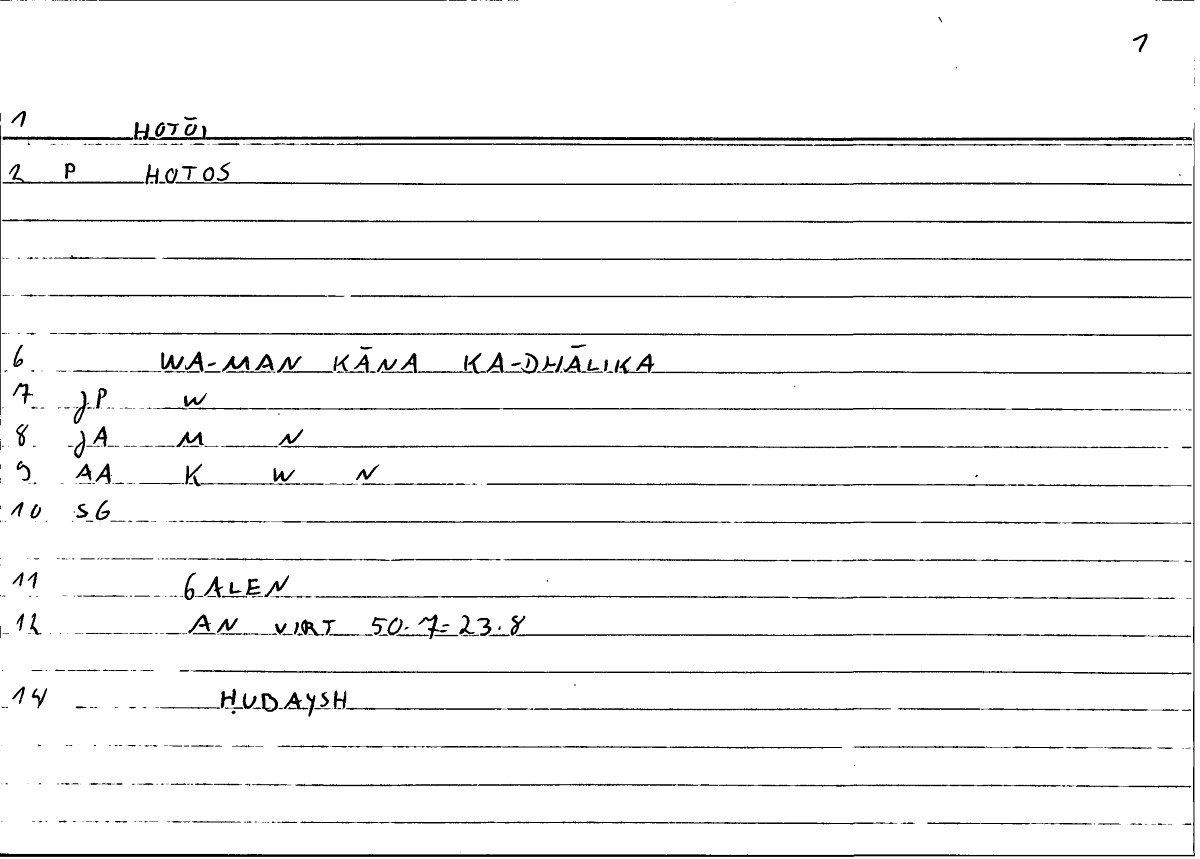 1
1 HOTŌI
2 P HOTOS
6 WA-MAN KĀNA KA-DHĀLIKA
7 JP W
8 JA M N
9 AA K W N
10 SG
11 GALEN
12 AN VIRT 50.7=23.8
14 ḤUBAYSH